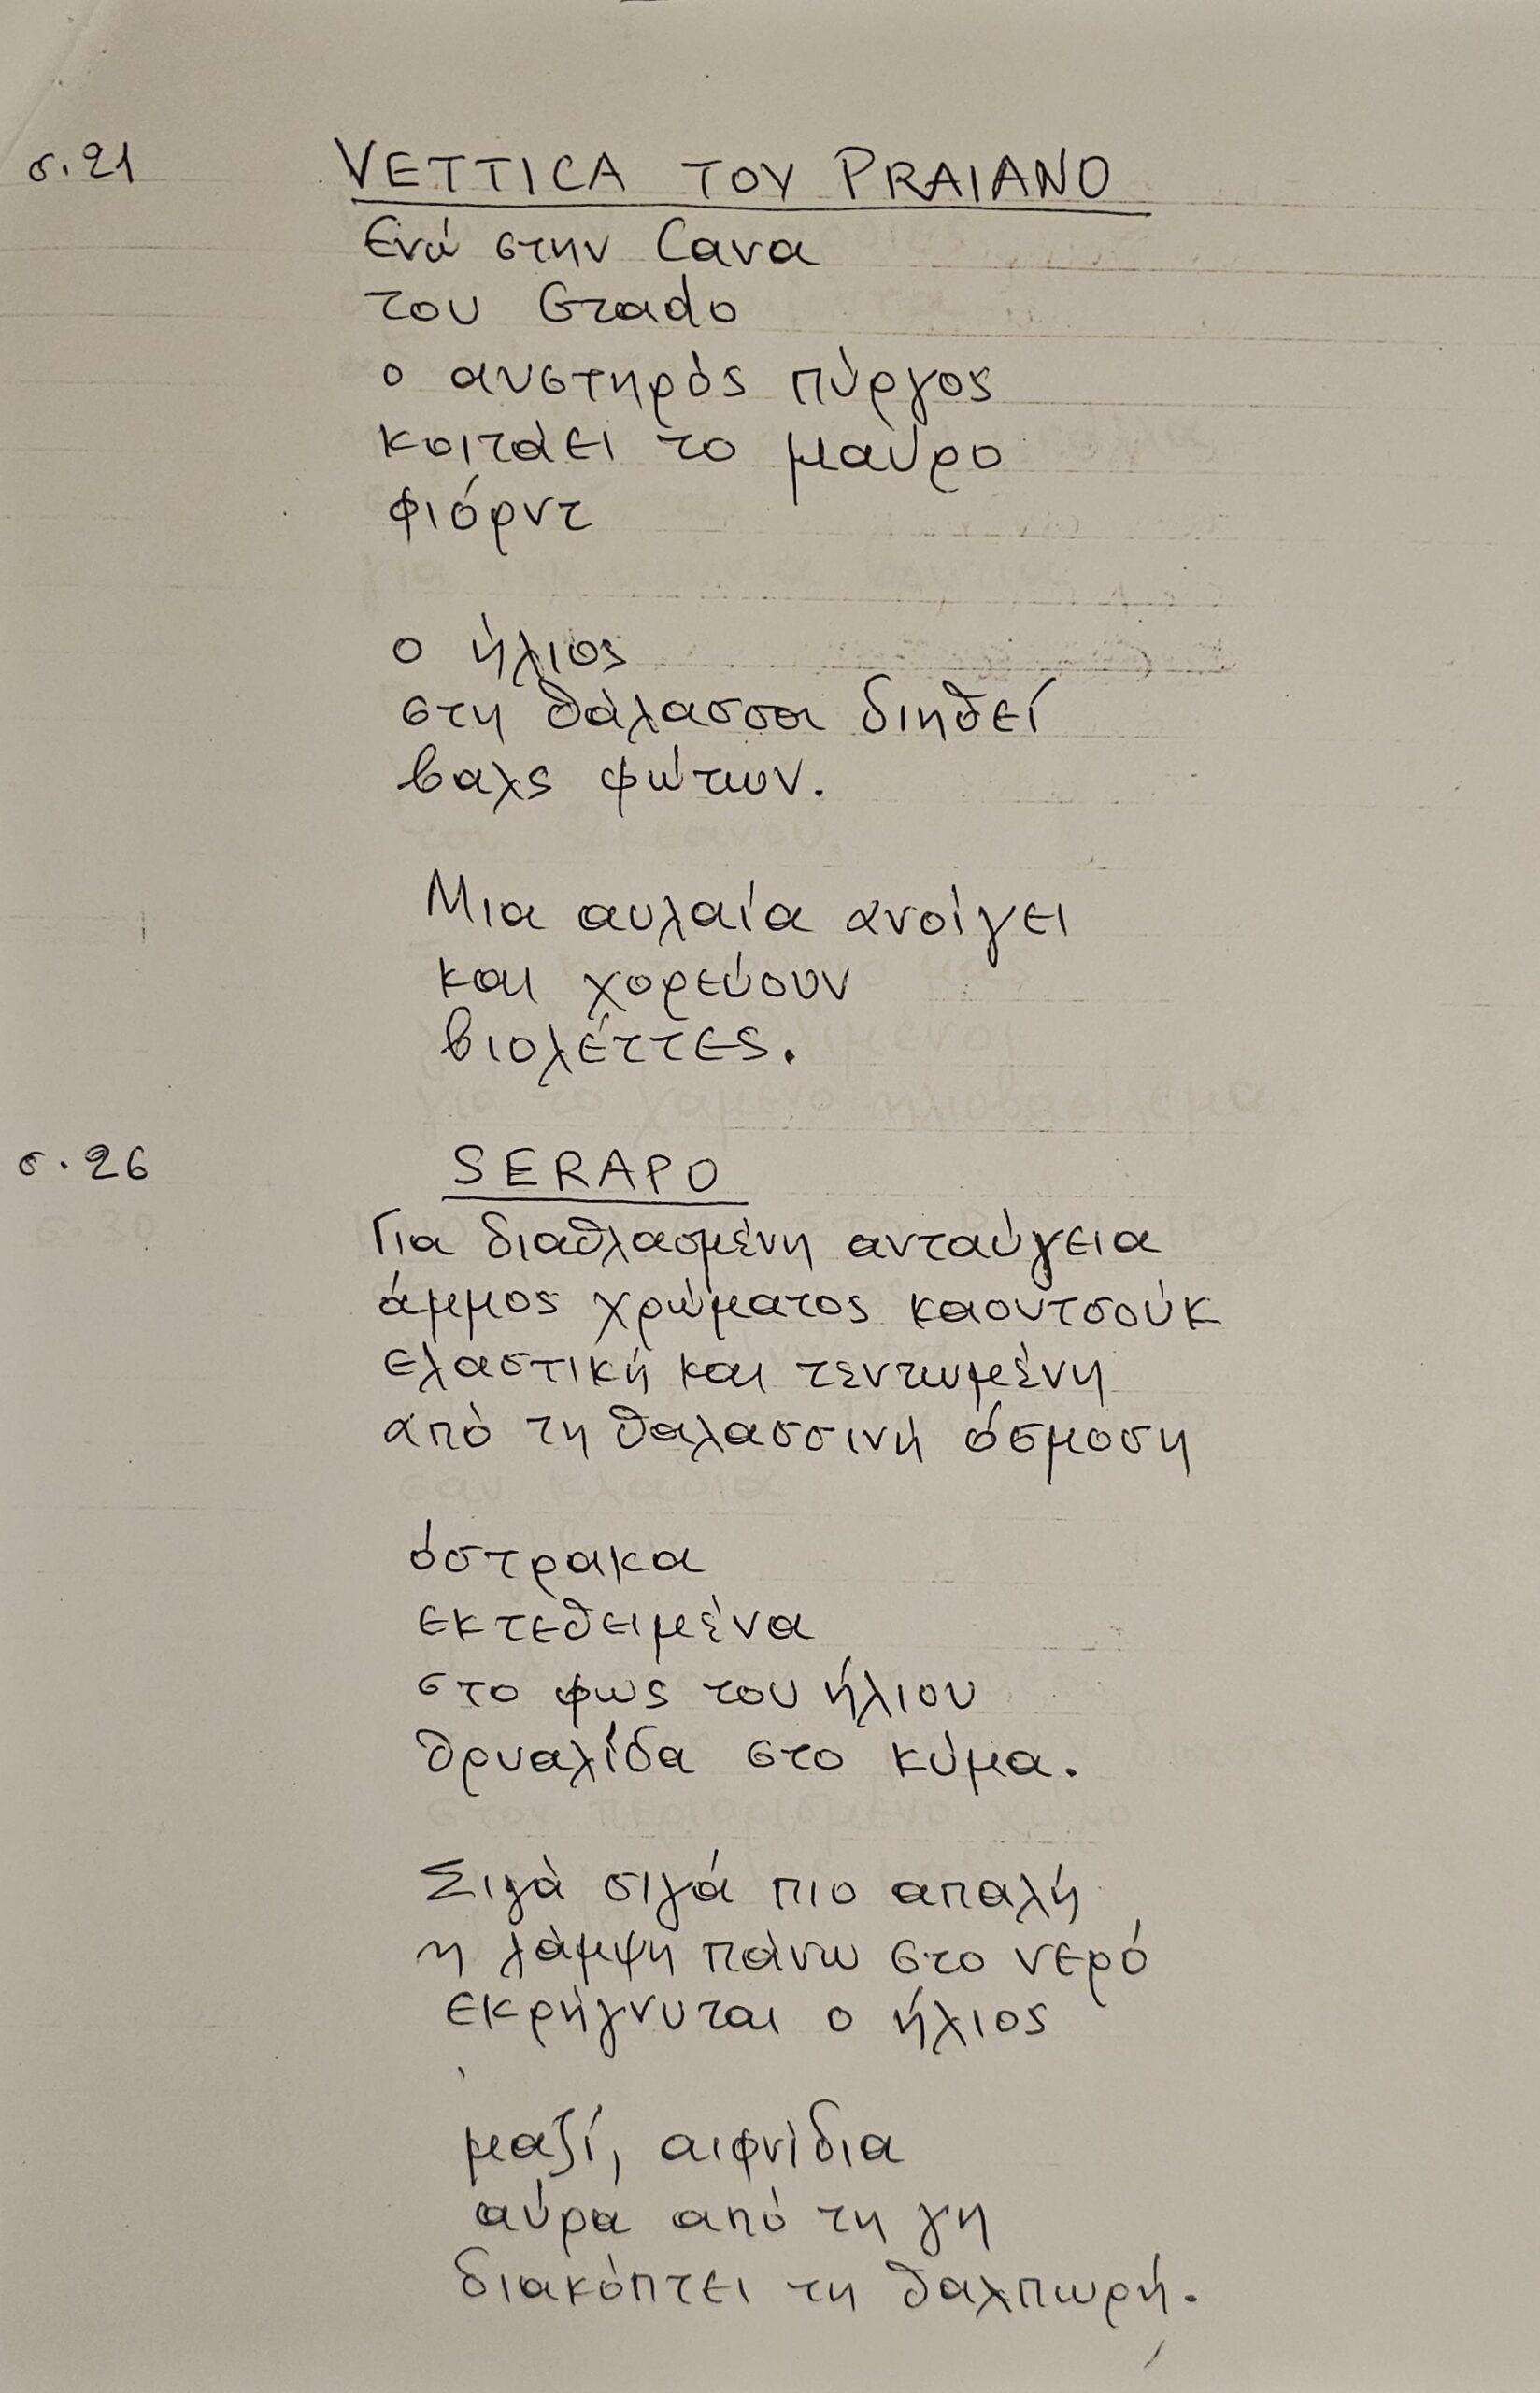 σ. 21
VETTICA ΤΟΥ PRAIANO
Ενώ στην Cava
του Grado
ο αυστηρός πύργος
κοιτάει το μαύρο
φιόρντ
ο ήλιος
στη θάλασσα διηθεί
βαλς φώτων.
Μια αυλαία ανοίγει
και χορεύουν
βιολέττες.
σ. 26
SERAPO
Για διαθλασμένη ανταύγεια
άμμος χρώματος καουτσούκ
ελαστική και τεντωμένη
από τη θαλασσινή όσμοση
όστρακα
εκτεθειμένα
στο φως του ήλιου
θρυαλίδα στο κύμα.
Σιγά σιγά πιο απαλή
η λάμψη πάνω στο νερό
εκρήγνυται ο ήλιος
μαζί, αιφνίδια
αύρα από τη γη
διακόπτει τη θαλπωρή.